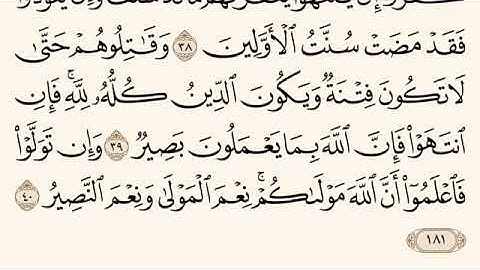 فَقَدْ مَضَتْ سُنَّتُ ٱلْأَوَّلِينَ ٣٨ وَقَٰتِلُوهُمْ حَتَّىٰ
لَا تَكُونَ فِتْنَةٌ وَيَكُونَ ٱلدِّينُ كُلُّهُۥ لِلَّهِ ۚ فَإِنِ
ٱنتَهَوْا۟ فَإِنَّ ٱللَّهَ بِمَا يَعْمَلُونَ بَصِيرٌ ٣٩ وَإِن تَوَلَّوْا۟
فَٱعْلَمُوٓا۟ أَنَّ ٱللَّهَ مَوْلَىٰكُمْ ۚ نِعْمَ ٱلْمَوْلَىٰ وَنِعْمَ ٱلنَّصِيرُ ٤٠
١٨١